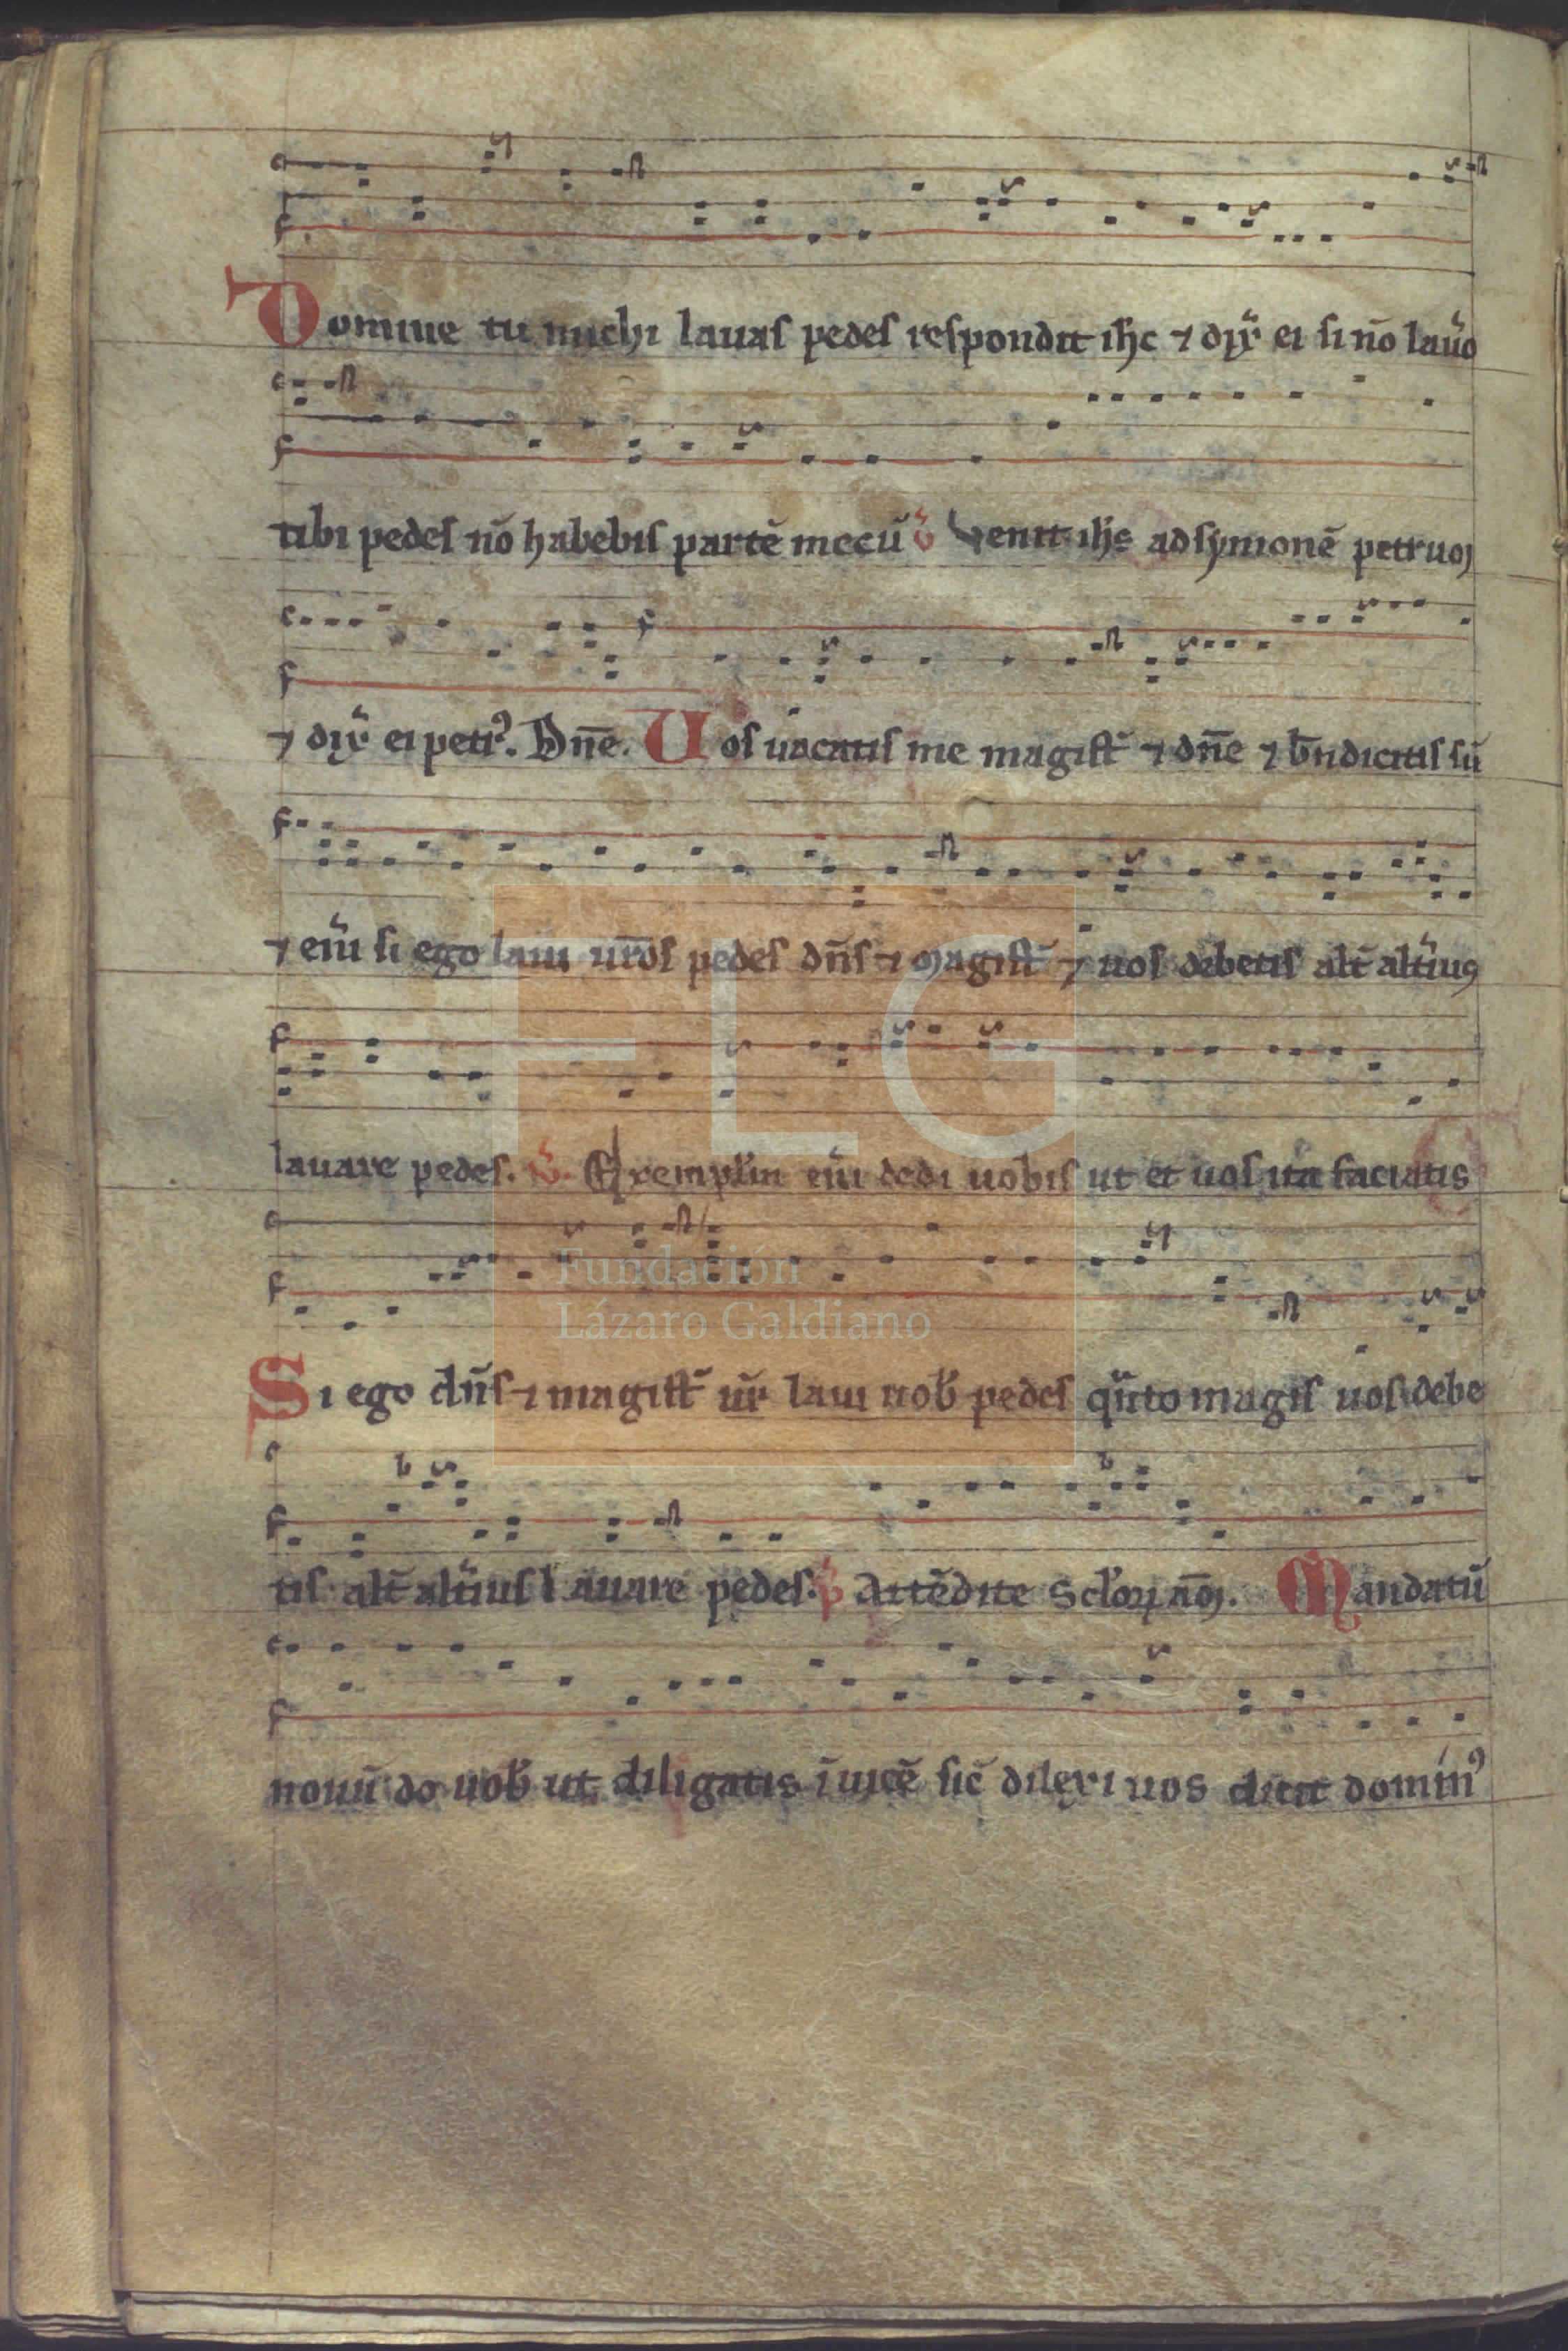 Domine tu michi lauas pedes respondit ih̄c ⁊ dix̄ ei si nō lau̾o
tibi pedes nō habebis partē mecū v̾ Uenit ih̄c ad symonē petruꝫ
⁊ dix̄ ei petrꝰ. Dn̄e. Uos uocatis me magist̄ ⁊ dn̄e ⁊ bn̄ dicitis sū
⁊ eni̾ si ego laui ur̄os pedes dn̄s ⁊ magist̄ ⁊ uos debetis alt̄ alt̾iuꝰ
lauare pedes. v̾. Exempl̄m eni̾ dedi uobis ut et uos ita faciatis
Si ego dn̄s ⁊ magist̄ ur̄ laui uob̾ pedes qn̄to magis uos debe
tis alt̄ alt̾ius lauare pedes. p̾ Attēdite Mandatū
nouū do uob̾ ut diligatis īuicē sic̄ dilexi uos dicit dominꝰ
FLG
Fundación
Lázaro Galdiano